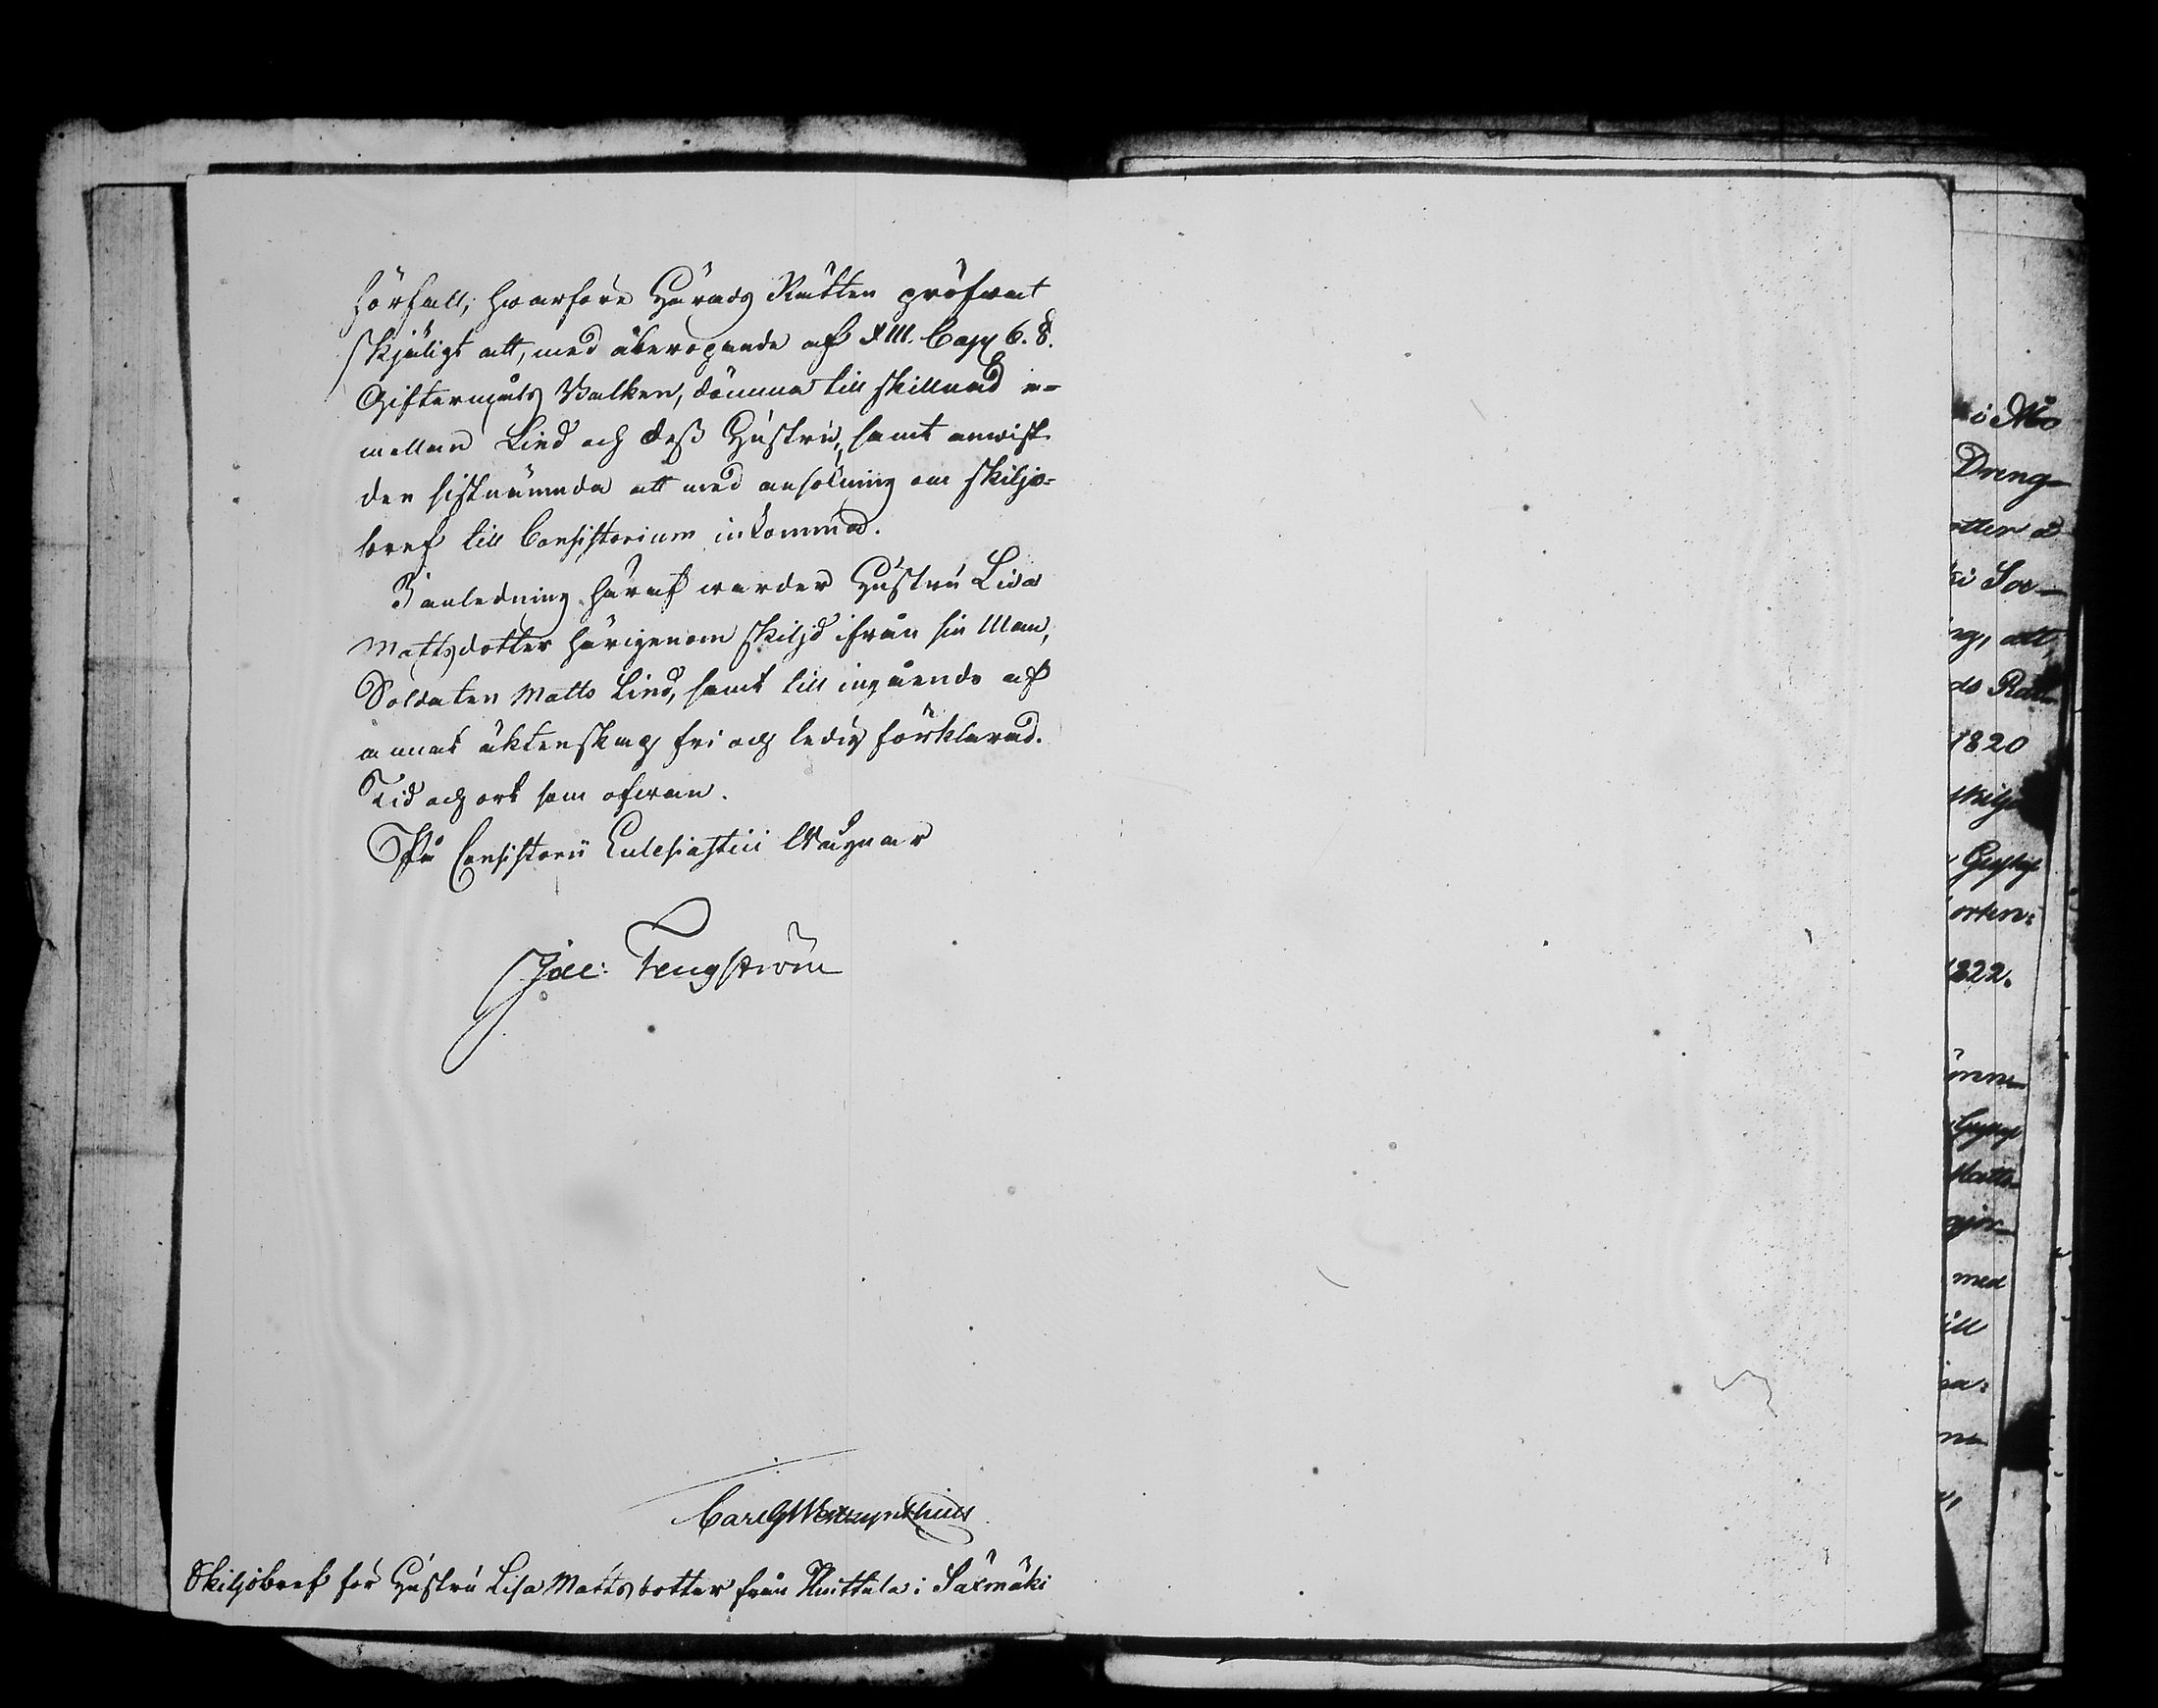 förfall, hvarföre Härads Rätten pröfvat
skjäligt att, med åberopande af XIII. Cap 6. §.
Giftermåls Balken, dömma till skillnad e-
mellan Lind och dess Hustru, samt anvist
den sistnämnda att med ansökning om skiljo-
bref till Consistorium inkomma.
I anledning häraf warder Hustru Lisa
Mattsdotter härigenom skiljd ifrån sin Man,
Soldaten Matts Lind, samt till ingående af
annat äktenskap fri och ledig förklarad.
Tid och ort som ofvan.
På Consistorii Eclesiastici Wägnar
Jac: Tengström
Carl G
Skiljobref för Hustru Lisa Mattsdotter från Huittula i Säxmäki
i Åbo
Dreng-
1820
1822.
med